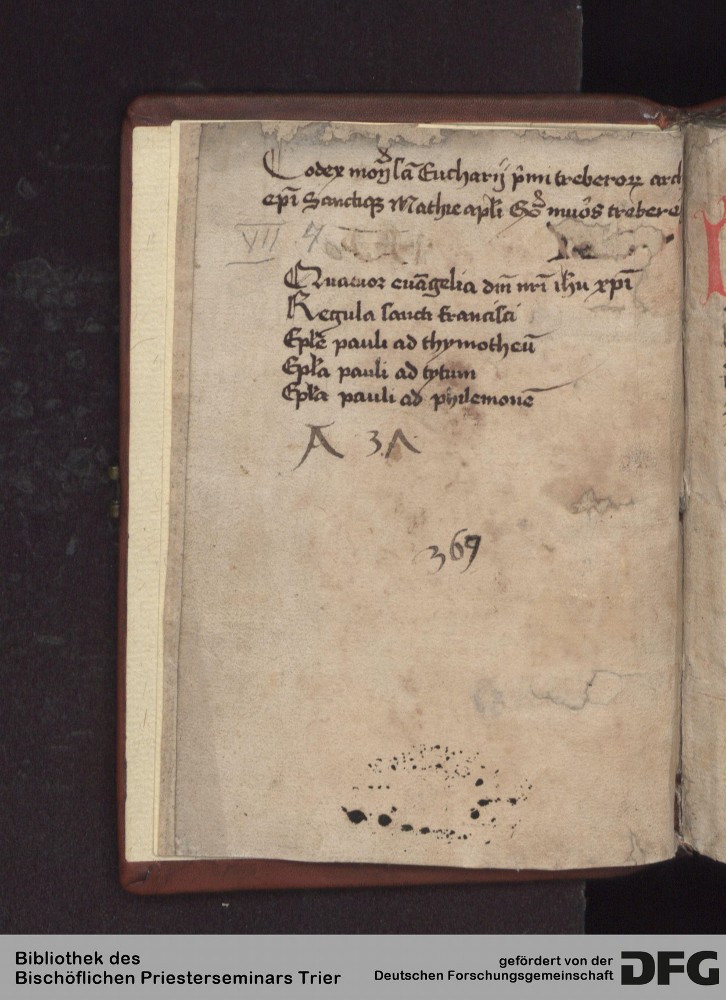 Codex moñ sc̄i Eucharij p̄mi treberoꝝ arch
epī Sanctiqꝫ Mathie apl̄i extͣ muōs trebere
VII 4
Quatuor euāgelia dn̄i nr̄i ih̄u xp̄i
Regula sancti francisci
Epl̄e pauli ad thymotheū
Epl̄a pauli ad tytum
Epl̄a pauli ad philemonē
A 31
367
Bibliothek des
Bischöflichen Priesterseminars Trier
gefördert von der
Deutschen Forschungsgemeinschaft
DFG